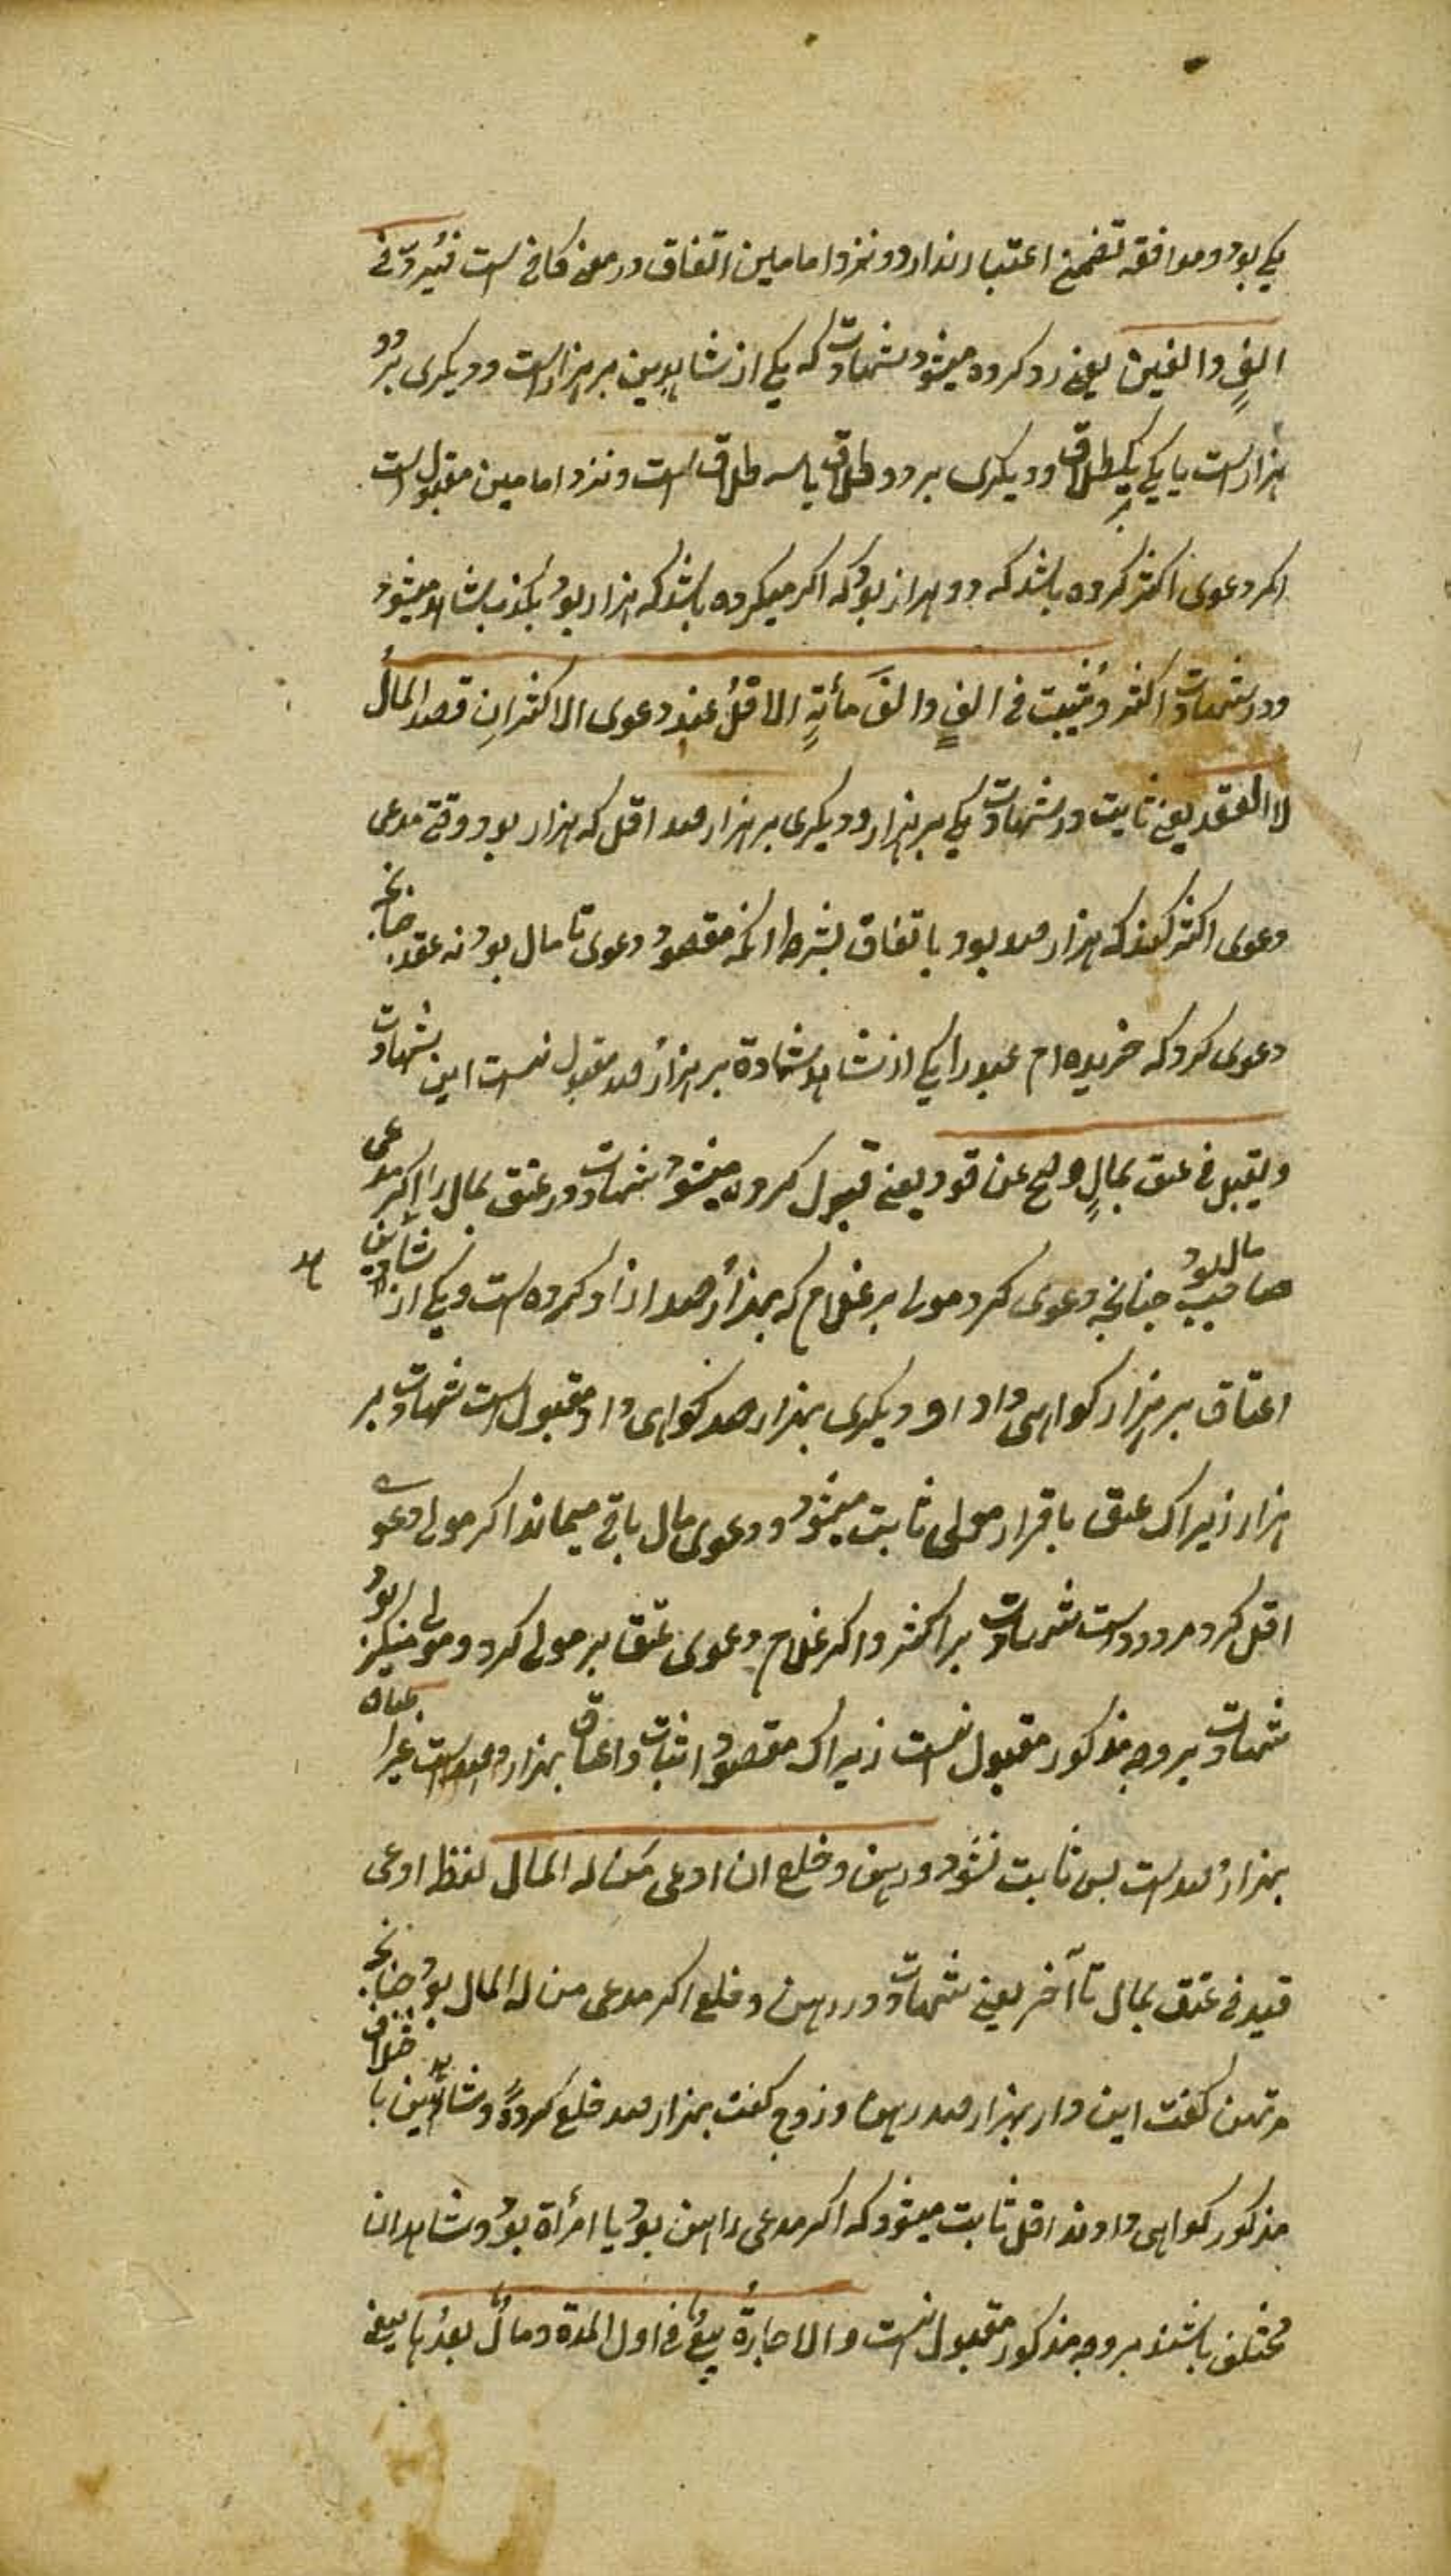 یکی بود و موافقه تضمن اعتبار ندارد و نزد امامین اتفاق در معنی کافی است فیرد فی
الفٍ والفین یعنی رد کرده میشود شهادت که یکی از شاهدین بر هزارست و دیکری بر دو
هزارست یا یکی بر یکطلاق و دیکری بر دو طلاق یا سه طلاق است و نزد امامین مقبولست
اکر دعوی اکثر کرده باشد که دو هزار بود که اکر میکرده باشد که هزار بود مکذب شاهد میشود
در شهادت اکثر و یثبت فی الفٍ والفَ مأئةٍ الاقلُ عند دعوی الاکثر انِ قصد المالُ
لا العقد یعنی ثابت در شهادت یکی بر هزار و دیکری بر هزار صد اقل که هزار بود وقتی مدعی
دعوی اکثر کند که هزار صد بود باتفاق بشرط انکه مقصود دعوی تا مال بود نه عقد چنانچه
دعوی کرد که خریده ام عبد را یکی از شاهد شهادة بر هزار صد مقبول نیست این شهادت
ویقبل فی عتق بمالٍ وصلح عن قود یعنی قبول کرده میشود شهادت در عتق بمال را اکر مدعی
صاحب مال بود چنانچه دعوی کرد مولا بر غلام که بهزار صد ازاد کرده است و یکی از شاهدین
اعتاق بر هزار کواهی داد و دیکری بهزار صد کواهی داد مقبولست شهادت بر
هزار زیراک عتق باقرار مولی ثابت میشود و دعوی مال باقی میماند اکر مولی دعوی
اقل کرد مردودست شهادت بر اکثر و اکر غلام دعوی عتق بر مولی کرد و مولی منکر بود
شهادت بر وجه مذکور مقبول نیست زیراک مقصود اثبات و اعتاق بهزار و صدست غیر
بهزار صدست پس ثابت نشود ورهن وخلع ان ادعی من له المال لفظ ادعی
قید فی عتق بمال تا آخر یعنی شهادت در رهن و خلع اکر مدعی من له المال بود چنانچه
مرتهن کفت این دار بهزار صد رهن و زوج کفت بهزار صد خلع کرده و شاهدین با خلاف
مذکور کواهی دادند اقل ثابت میشود که اکر مدعی راهن بود یا امرأة بود و شاهدان
مختلف باشند بر وجه مذکور مقبول نیست والاجارةُ بیعٌ فی اول المدة ومالٌ بعدُها یعنی